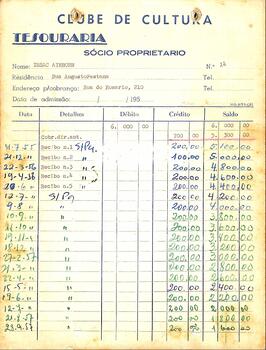 CLUBE DE CULTURA
TESOURARIA
SÓCIO PROPRIETARIO
Nome: ISAAC AINHORN N.º 14
Residência Rua Augusto Pestana Tel.
Endereço p/cobrança: Rua do Rosario, 210 Tel.
Data de admissão: / /195
Data Detalhes Débito Crédito Saldo
6. 000 00 6. 000 00
Cobr.dir.ant. 700 00 5. 300 00
4-7-55 Recibo n.1 S/Pg 200.00 5.100.00
21-12-" Recibo n.2 " 100.00 5.000.00
22-3-56 Recibo n.3 " 200.00 4.800.00
19-4-56 Recibo n.4 " 200.00 4.600.00
20-6 " Recibo n.5 " 200.00 4.400.00
12-7-" S/Pg 200.00 4.200.00
9-8 " " 200.00 4.000.00
10-9-" " 200.00 3.800.00
" 200.00 3.600.00
19-11-" " 200.00 3.400.00
" 200.00 3.200.00
" 200.00 3.000.00
27-2-57 " 200.00 2.800.00
" 200.00 2.600.00
15-5-" " 200.00 2.400.00
19-6-" " 200.00 2.200
12-7-" " 200.00 2.000 00
21-8-57 " 200 00 1 800 00
23.9.57 " 200 00 1 600 00